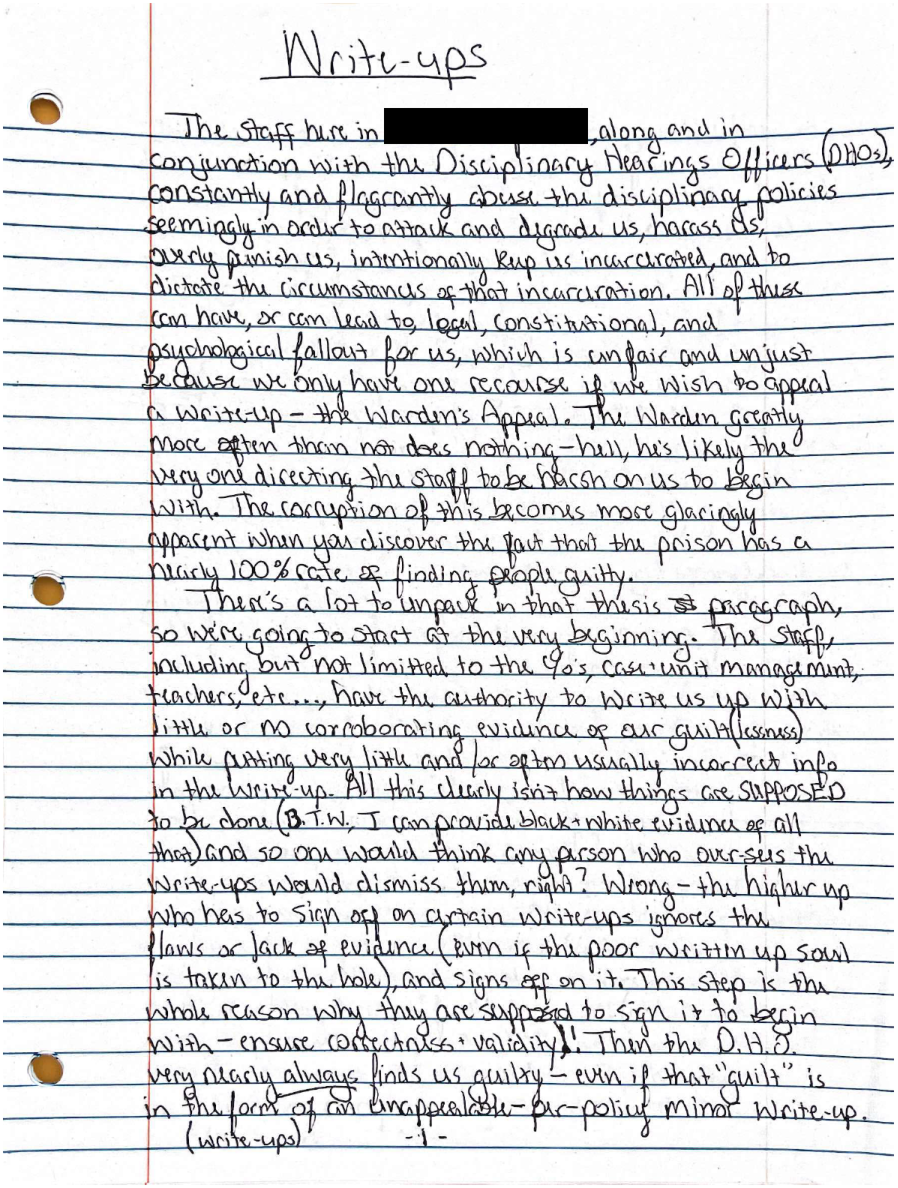 Write-ups
The Staff here in , along and in
conjunction with the Disciplinary Hearings Officers (DHOs),
constantly and flagrantly abuse the disciplinary policies
seemingly in order to attack and degrade us, harass us,
overly punish us, intentionally keep us incarcerated, and to
dictate the circumstances of that incarceration. All of these
can have, or can lead to, legal, constitutional, and
psychological fallout for us, which is unfair and unjust
because we only have one recourse if we wish to appeal
a write-up - the Warden's Appeal. The Warden greatly
more often than not does nothing - hell, he's likely the
very one directing the staff to be harsh on us to begin
with. The corruption of this becomes more glaringly
apparent when you discover the fact that the prison has a
nearly 100% rate of finding people guilty.
There's a lot to unpack in that thesis paragraph,
so we're going to start at the very beginning. The staff,
including but not limitted to the c/o's, case + unit management,
teachers, etc..., have the authority to write us up with
little or no corroborating evidence of our guilt(lessness)
while putting very little and/or often usually incorrect info
in the write-up. All this clearly isn't how things are SUPPOSED
to be done (B.T.W., I can provide black + white evidence of all
that) and so one would think any person who over-sees the
write-ups would dismiss them, right? Wrong - the higher up
who has to sign off on certain write-ups ignores the
flaws or lack of evidence (even if the poor written up soul
is taken to the hole), and signs off on it. This step is the
whole reason why they are supposed to sign it to begin
with - ensure correctness + validity!! Then the D.H.O.
very nearly always finds us guilty - even if that "guilt" is
in the form of an unappealable-per-policy minor write-up.
(write-ups) -1-